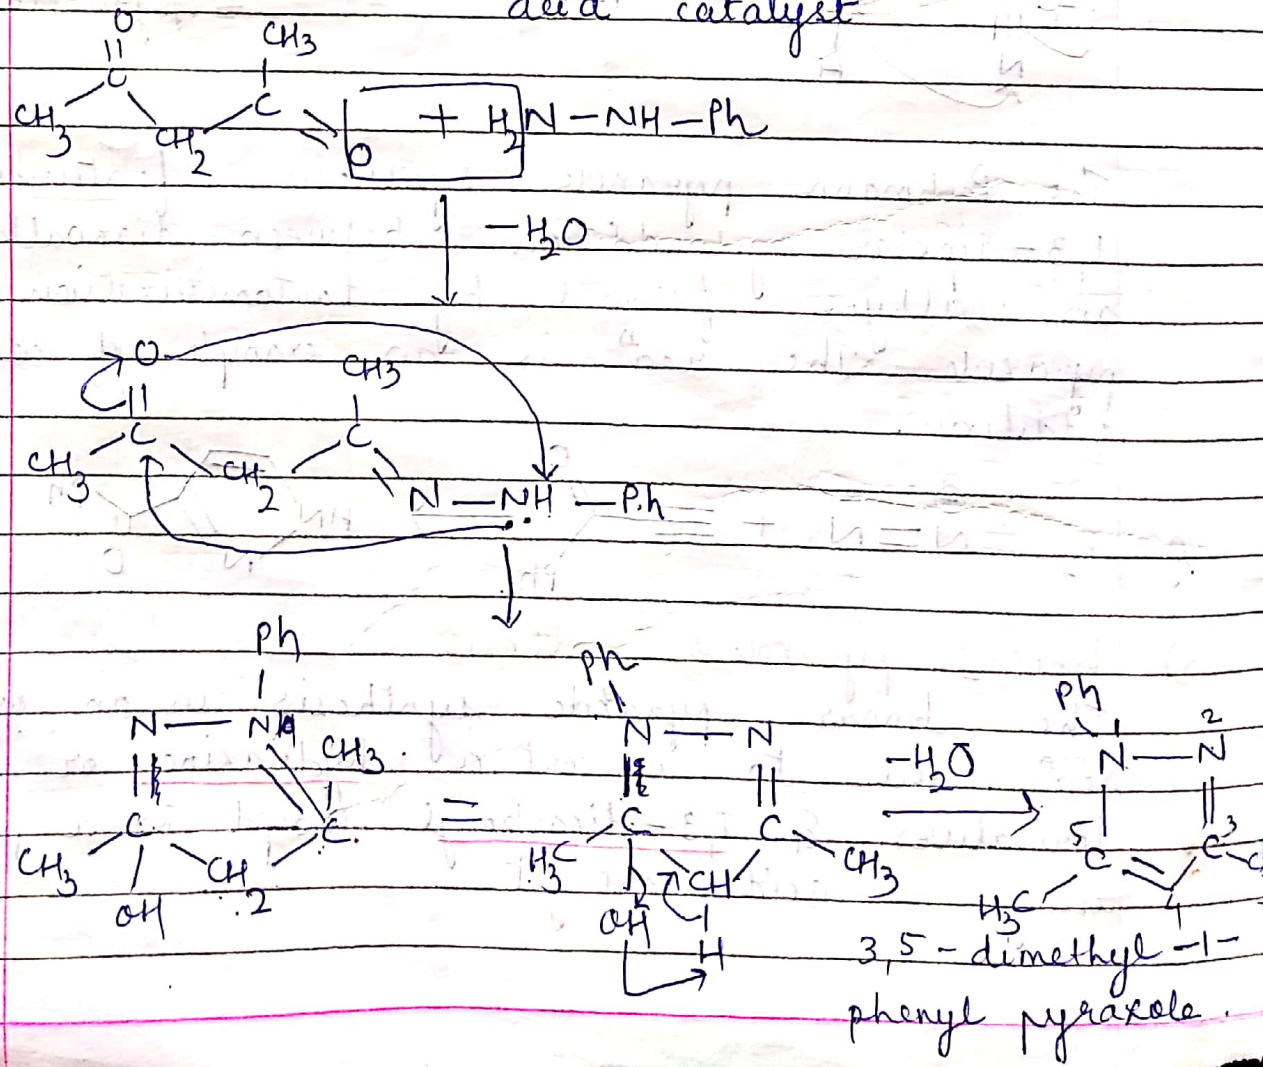 acid catalyst
O
CH3
C
C
CH3
CH2
O + H2N - NH - Ph
- H2O
O
CH3
C
C
CH3
CH2
N - NH - Ph
Ph
N - NH
CH3
C
C
CH3
CH2
OH
=
Ph
N - N
C
C
H3C
CH
CH3
OH
H
- H2O
Ph
1 2
N - N
5
C
3
C
H3C
4
3,5 - dimethyl - 1 -
phenyl pyrazole.